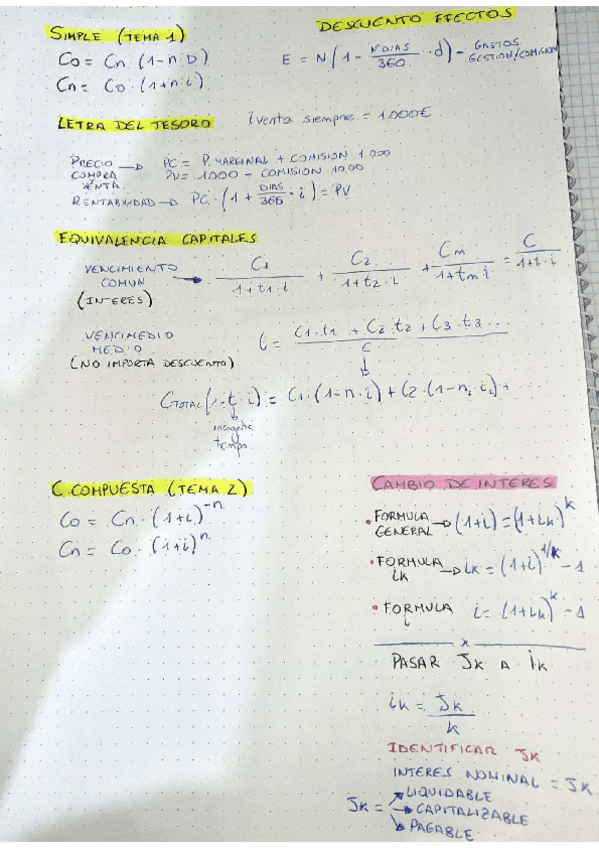 SIMPLE (TEMA 1)
Co = Cn · (1-n·D)
Cn = Co · (1+n·i)
DESCUENTO EFECTOS
E = N (1 - NDIAS/360 · d) - GASTOS GESTION/COMISION
LETRA DEL TESORO
(venta siempre = 1.000€
PRECIO → PC = P. MARGINAL + COMISION 1.000
COMPRA PV = 1000 - COMISION 1000
VENTA
RENTABILIDAD → PC · (1 + DIAS/365 · i) = PV
EQUIVALENCIA CAPITALES
VENCIMIENTO COMUN (INTERES) → C1/1+t1·i + C2/1+t2·i + Cm/1+tm·i = C/1+t·i
VENCIMEDIO
MEDIO
(NO IMPORTA DESCUENTO)
t = C1·t1 + C2·t2 + C3·t3.../C
CTOTAL (1-t·i) = C1·(1-n·i) + C2·(1-n·i) + ..
incognita
tiempo
C. COMPUESTA (TEMA 2)
Co = Cn · (1+i)^-n
Cn = Co · (1+i)^n
CAMBIO DE INTERES
• FORMULA GENERAL → (1+i) = (1+ik)^k
• FORMULA ik → ik = (1+i)^1/k - 1
• FORMULA i i = (1+ik)^k - 1
x
PASAR Jk A ik
ik = Jk/k
IDENTIFICAR Jk
INTERES NOMINAL = Jk
Jk = → LIQUIDABLE
→ CAPITALIZABLE
→ PAGABLE